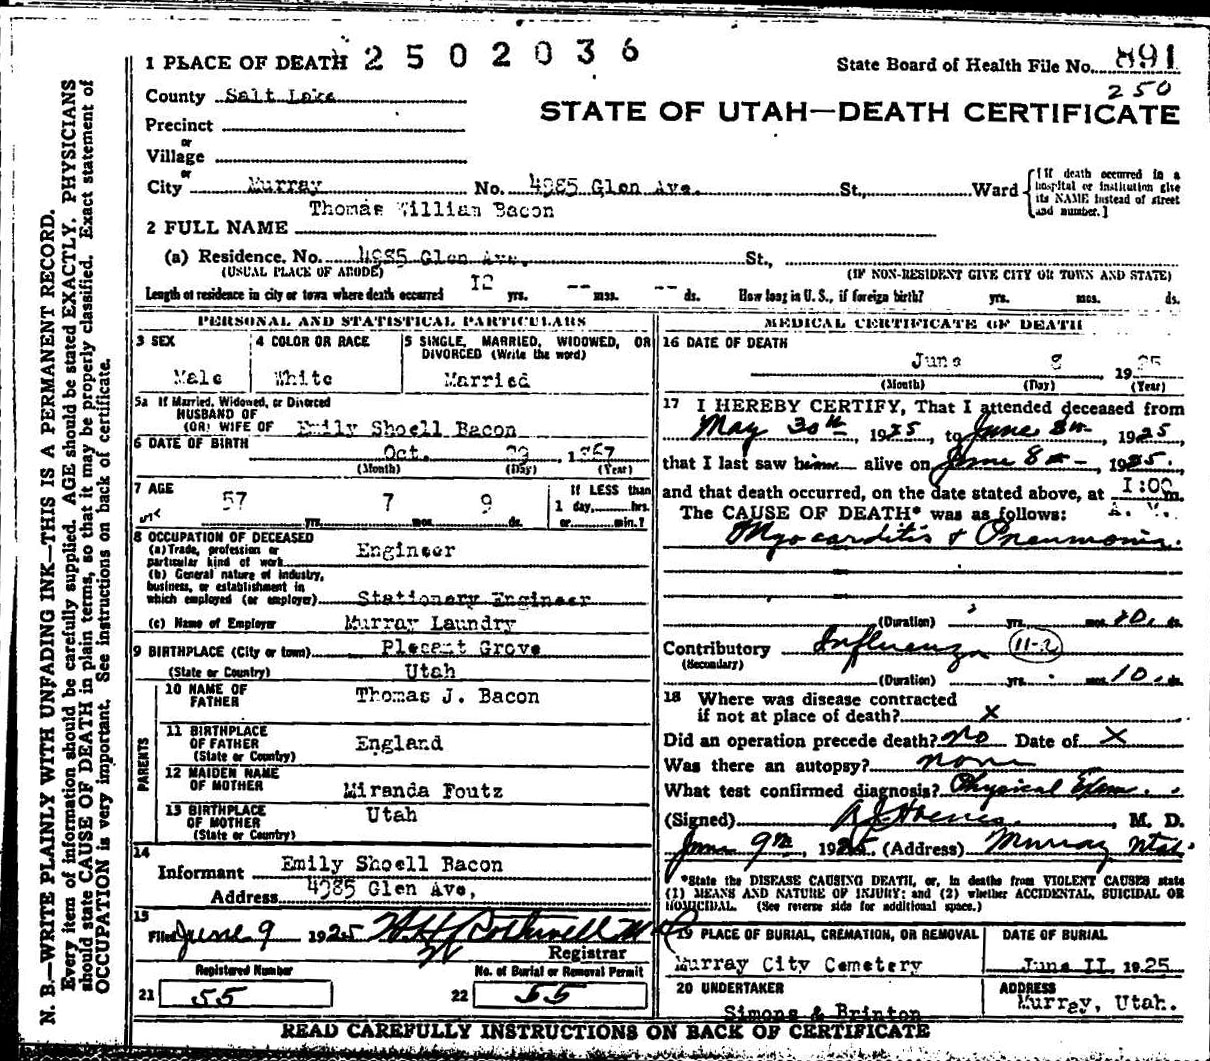 1 PLACE OF DEATH 2 5 0 2 0 3 6
State Board of Health File No. 891
250
County Salt Lake
STATE OF UTAH—DEATH CERTIFICATE
Precinct
or
Village
or
City Murray No. 4985 Glen Ave. St., Ward
[If death occurred in a
hospital or institution give
its NAME instead of street
and number.]
Thomas William Bacon
2 FULL NAME
(a) Residence. No. 4985 Glen Ave. St.,
(USUAL PLACE OF ABODE) (IF NON-RESIDENT GIVE CITY OR TOWN AND STATE)
Length of residence in city or town where death occurred I2 yrs. -- mos. -- ds. How long in U. S., if foreign birth? yrs. mos. ds.
PERSONAL AND STATISTICAL PARTICULARS
3 SEX
Male
4 COLOR OR RACE
White
5 SINGLE, MARRIED, WIDOWED, OR
DIVORCED (Write the word)
Married
5a If Married, Widowed, or Divorced
HUSBAND OF
(OR) WIFE OF Emily Shoell Bacon
6 DATE OF BIRTH Oct. 29 1867
(Month) (Day) (Year)
7 AGE
57 yrs. 7 mos. 9 ds.
If LESS than
1 day, hrs.
or min.?
8 OCCUPATION OF DECEASED
(a) Trade, profession or
particular kind of work Engineer
(b) General nature of industry,
business, or establishment in
which employed (or employer) Stationary Engineer
(c) Name of Employer Murray Laundry
9 BIRTHPLACE (City or town) Plesant Grove
(State or Country) Utah
PARENTS
10 NAME OF
FATHER Thomas J. Bacon
11 BIRTHPLACE
OF FATHER England
(State or Country)
12 MAIDEN NAME
OF MOTHER Miranda Foutz
13 BIRTHPLACE
OF MOTHER Utah
(State or Country)
14
Informant Emily Shoell Bacon
Address 4985 Glen Ave,
15
Filed June 9 1925
Registrar
Registered Number
21 55
No. of Burial or Removal Permit
22 55
MEDICAL CERTIFICATE OF DEATH
16 DATE OF DEATH
June 8 1925
(Month) (Day) (Year)
17 I HEREBY CERTIFY, That I attended deceased from
May 30th, 1925, to June 8th, 1925
that I last saw him alive on June 8th, 1925.
and that death occurred, on the date stated above, at I:00 m.
A. M.
The CAUSE OF DEATH* was as follows:
Myocarditis & Pneumonia.
(Duration) yrs. mos. 10 ds.
Contributory Influenza 11-2
(Secondary)
(Duration) yrs. mos. 10 ds.
18 Where was disease contracted
if not at place of death? X
Did an operation precede death? no Date of X
Was there an autopsy? none
What test confirmed diagnosis? Physical Exam.
(Signed) M. D.
June 9th, 1925. (Address) Murray Utah
*State the DISEASE CAUSING DEATH, or, in deaths from VIOLENT CAUSES state
(1) MEANS AND NATURE OF INJURY; and (2) whether ACCIDENTAL, SUICIDAL OR
HOMICIDAL. (See reverse side for additional space.)
19 PLACE OF BURIAL, CREMATION, OR REMOVAL
Murray City Cemetery
DATE OF BURIAL
June II, 1925
20 UNDERTAKER
Simons & Brinton
ADDRESS
Murray, Utah.
READ CAREFULLY INSTRUCTIONS ON BACK OF CERTIFICATE
N. B.—WRITE PLAINLY WITH UNFADING INK—THIS IS A PERMANENT RECORD.
Every item of information should be carefully supplied. AGE should be stated EXACTLY. PHYSICIANS
should state CAUSE OF DEATH in plain terms, so that it may be properly classified. Exact statement of
OCCUPATION is very important. See instructions on back of certificate.